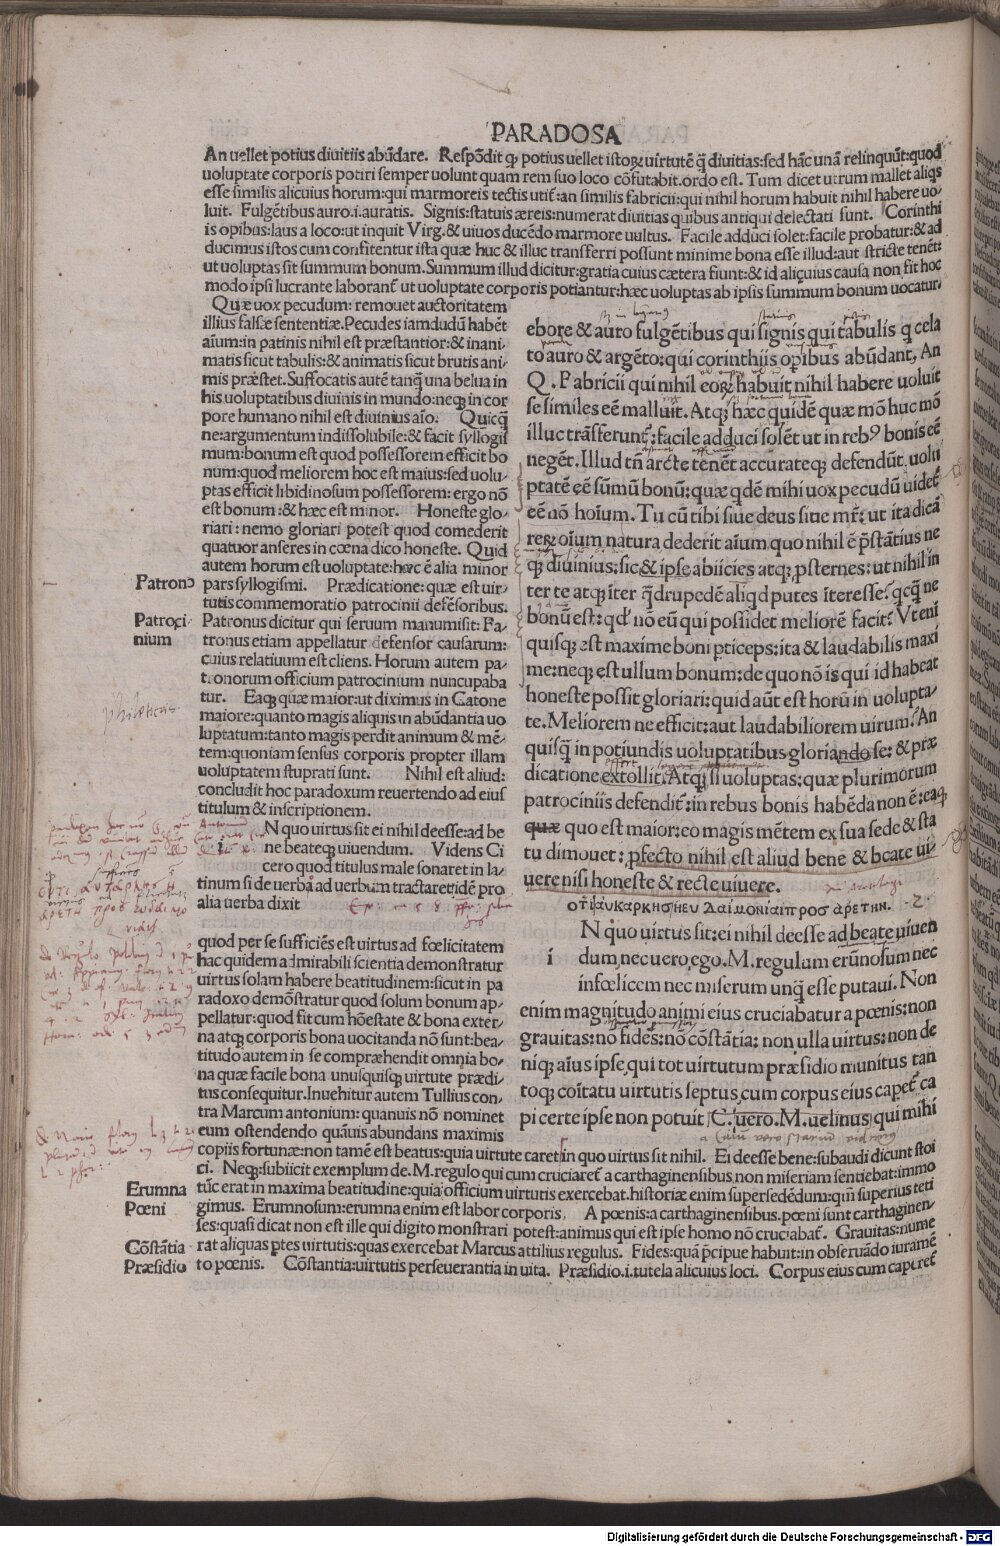 PARADOSA
An uellet potius diuitiis abūdare. Respōdit ꝙ potius uellet istoꝝ uirtutē q̄ diuitias: sed hāc unā relinquūt: quod
uoluptate corporis potiri semper uolunt quam rem suo loco cōfutabit. ordo est. Tum dicet utrum mallet aliqs
esse similis alicuius horum: qui marmoreis tectis utit̄: an similis fabricii: qui nihil horum habuit nihil habere uo/
luit. Fulgētibus auro.i.auratis. Signis: statuis æreis: numerat diuitias quibus antiqui delectati sunt. Corinthi
is opibus: laus a loco: ut inquit Virg. & uiuos ducēdo marmore uultus. Facile adduci solet: facile probatur: & ad
ducimus istos cum confitentur ista quæ huc & illuc transferri possunt minime bona esse illud: aut stricte tenēt:
ut uoluptas sit summum bonum. Summum illud dicitur: gratia cuius cætera fiunt: & id alicuius causa non fit hoc
modo ipsi lucrante laborant̄ ut uoluptate corporis potiantur: hæc uoluptas ab ipsis summum bonum uocatur.
Quæ uox pecudum: remouet auctoritatem
illius falsæ sententiæ. Pecudes iamdudū habēt
aīum: in patinis nihil est præstantior: & inani/
matis sicut tabulis: & animatis sicut brutis ani/
mis præstet. Suffocatis autē tanq̄ una belua in
his uoluptatibus diuinis in mundo: neqꝫ in cor
pore humano nihil est diuinius aīo. Quicq̄
ne: argumentum indissolubile: & facit syllogis
mum: bonum est quod possessorem efficit bo
num: quod meliorem hoc est maius: sed uolu/
ptas efficit libidinosum possessorem: ergo nō
est bonum: & hæc est minor. Honeste glo/
riari: nemo gloriari potest quod comederit
quatuor anseres in cœna dico honeste. Quid
autem horum est uoluptate: hæc ē alia minor
Patronꝰ
pars syllogismi. Prædicatione: quæ est uir/
tutis commemoratio patrocinii defēsoribus.
Patroci/
nium
Patronus dicitur qui seruum manumisit: Pa/
tronus etiam appellatur defensor causarum:
cuius relatiuum est cliens. Horum autem pa/
tronorum officium patrocinium nuncupaba
tur. Eaqꝫ quæ maior: ut diximus in Catone
maiore: quanto magis aliquis in abūdantia uo
luptatum: tanto magis perdit animum & mē/
tem: quoniam sensus corporis propter illam
uoluptatem stuprati sunt. Nihil est aliud:
concludit hoc paradoxum reuertendo ad eius
titulum & inscriptionem.
i N quo uirtus sit ei nihil deesse: ad be
ne beateqꝫ uiuendum. Videns Ci
cero quod titulus male sonaret in la/
tinum si de uerba ad uerbum tractaret: idē pro
alia uerba dixit
quod per se sufficiēs est uirtus ad fœlicitatem
hac quidem admirabili scientia demonstratur
uirtutem solam habere beatitudinem: sicut in pa
radoxo demōstratur quod solum bonum ap/
pellatur: quod fit cum hōestate & bona exter/
na atqꝫ corporis bona uocitanda nō sunt: bea/
titudo autem in se compræhendit omnia bo/
na quæ facile bona unusquisqꝫ uirtute prædi/
tus consequitur. Inuehitur autem Tullius con/
tra Marcum antonium: quanuis nō nominet
eum ostendendo quāuis abundans maximis
ebore & auro fulgētibus qui signis qui tabulis q̄ cela
to auro & argēto: qui corinthiis opibus abūdant, An
Q. Fabricii qui nihil eoꝝ habuit nihil habere uoluit
se similes eē malluit. Atqꝫ hæc quidē quæ mō huc mō
illuc trāsferunt̄: facile adduci solēt ut in rebꝰ bonis eē
negēt. Illud tn̄ arcte tenēt accurateqꝫ defendūt, uolu
ptatē eē sūmū bonū: quæ qdē mihi uox pecudū uidet̄
eē nō hoīum. Tu cū tibi siue deus siue mr̄: ut ita dicā
reꝝ oīum natura dederit aīum quo nihil ē p̄stātius ne
qꝫ diuinius: sic & ipse abiicies atqꝫ ꝓsternes: ut nihil in
ter te atqꝫ iter q̄drupedē aliqd putes iteresse? qcq̄ ne
bonū est: qd' nō eū qui possidet meliorē facit? Vt eni
quisqꝫ est maxime boni pticeps: ita & laudabilis maxi
me: neqꝫ est ullum bonum: de quo nō is qui id habeat
honeste possit gloriari: quid aūt est horū in uolupta/
te. Meliorem ne efficit: aut laudabiliorem uirum? An
quisq̄ in potiundis uoluptatibus gloriando se: & præ
dicatione extollit. Atqꝫ si uoluptas: quæ plurimorum
patrociniis defendit̄: in rebus bonis habēda non ē: eaqꝫ
quæ quo est maior: eo magis mētem ex sua sede & sta
tu dimouet: ꝓfecto nihil est aliud bene & beate ui/
uere nisi honeste & recte uiuere.
οτι αυκαρκησ η ευδαιμονια προσ αρετην. -2-
i N quo uirtus sit: ei nihil deesse ad beate uiuen
dum, nec uero, ego. M. regulum erūnosum nec
infœlicem nec miserum unq̄ esse putaui. Non
enim magnitudo animi eius cruciabatur a pœnis: non
grauitas: nō fides: nō cōstātia: non ulla uirtus: non de
niqꝫ aīus ipse, qui tot uirtutum præsidio munitus tan
toqꝫ coītatu uirtutis septus, cum corpus eius capet̄ ca
pi certe ipse non potuit, C. uero. M. uelinus, qui mihi
copiis fortunæ: non tamē est beatus: quia uirtute caret, in quo uirtus sit nihil. Ei deesse bene: subaudi dicunt stoi
ci. Neqꝫ: subiicit exemplum de. M. regulo qui cum cruciaret̄ a carthaginensibus non miseriam sentiebat: immo
Erumna
tūc erat in maxima beatitudine: quia officium uirtutis exercebat. historiæ enim supersedēdum: qm̄ superius teti
Pœni
gimus. Erumnosum: erumna enim est labor corporis. A pœnis: a carthaginensibus. pœni sunt carthaginen/
ses: quasi dicat non est ille qui digito monstrari potest: animus qui est ipse homo nō cruciabat̄. Grauitas: nume
Cōstātia
rat aliquas ptes uirtutis: quas exercebat Marcus attilius regulus. Fides: quā p̄cipue habuit: in obseruādo iuramē
Præsidio
to pœnis. Cōstantia: uirtutis perseuerantia in uita. Præsidio.i.tutela alicuius loci. Corpus eius cum capiret̄
Digitalisierung gefördert durch die Deutsche Forschungsgemeinschaft - DFG